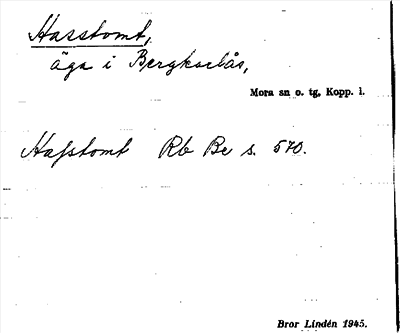 Hasstomt,
äga i Bergkarlås,
Mora sn o. tg, Kopp. l.
Hafstomt Rb Be s. 570.
Bror Lindén 1945.